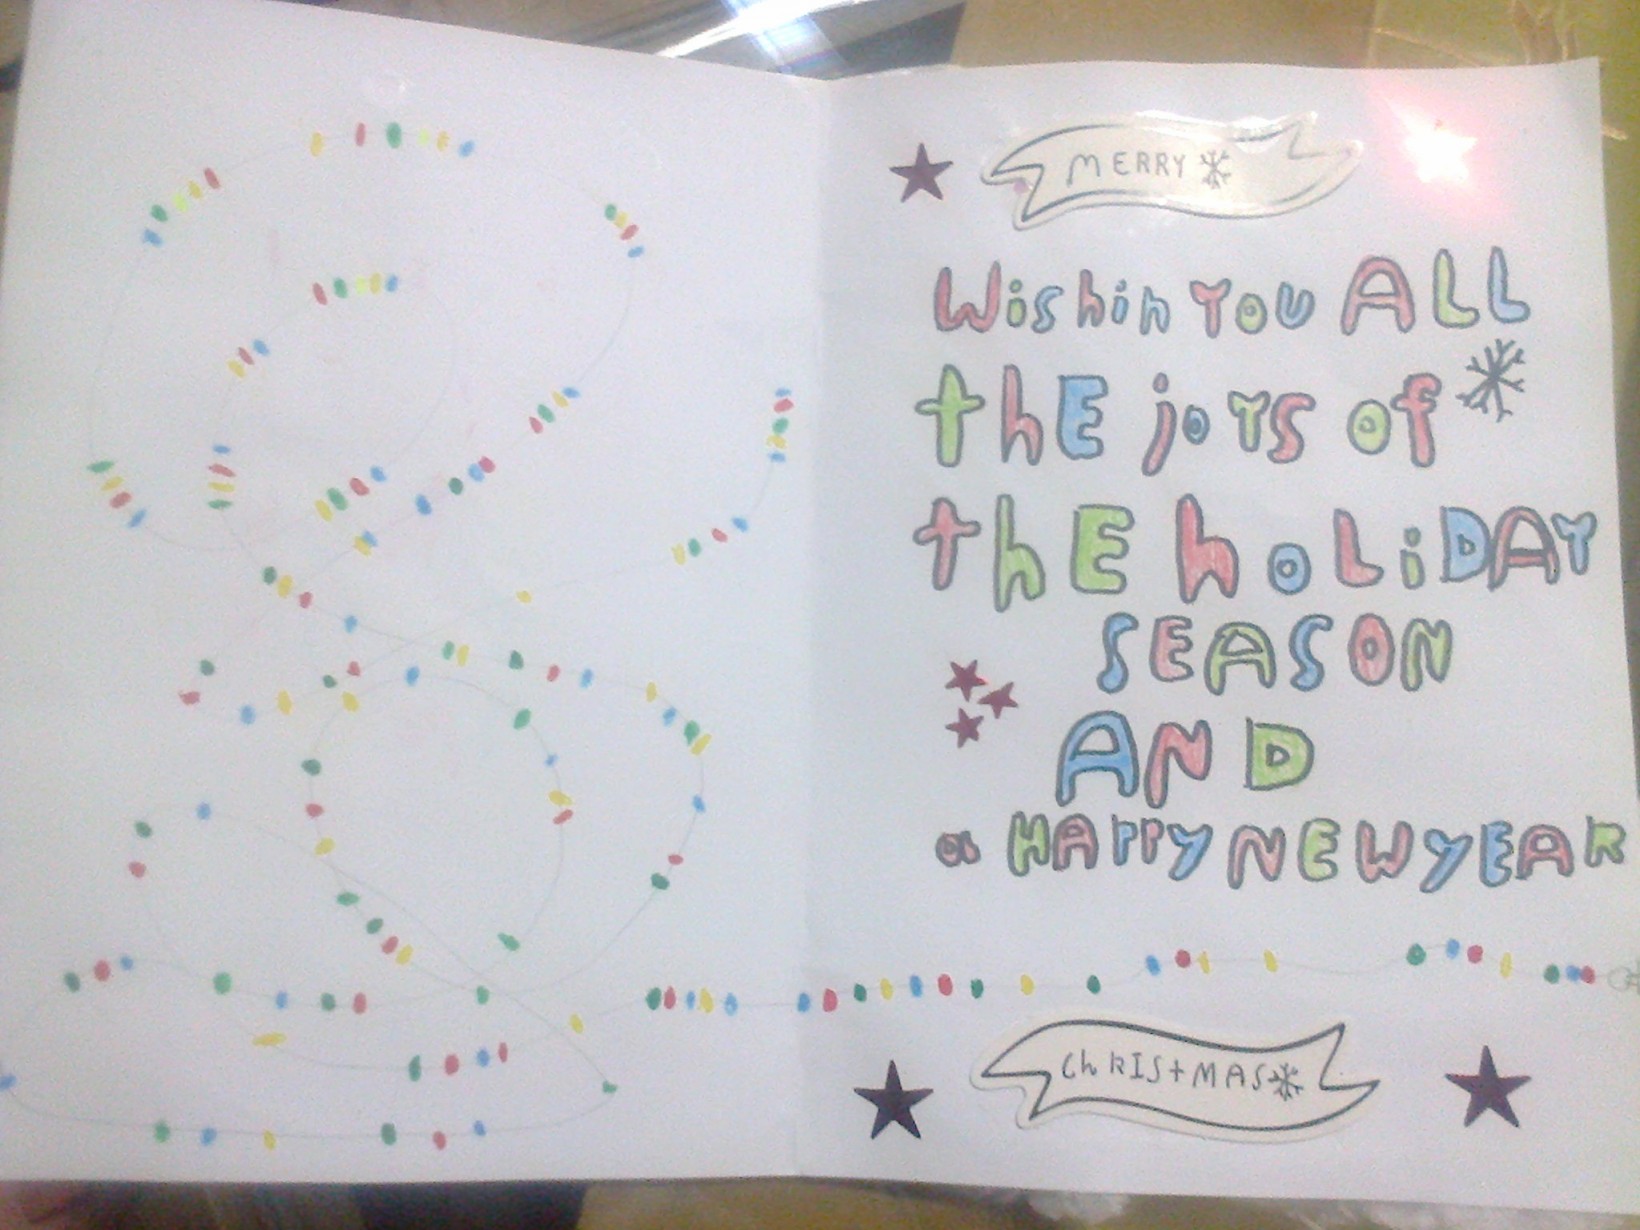 MERRY
Wishin You ALL
thE joYS of
thE hoLiDAY
SEASON
AND
a HAPPY NEW YEAR
ChRIStMAS